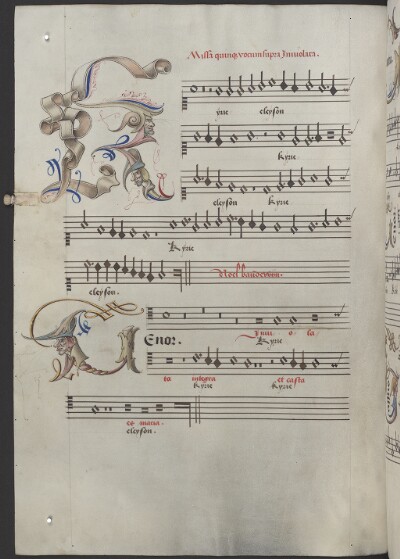 Missa quinq₃ vocum supra Inuiolata.
yrie eleyson
Kyrie
eleyson Kyrie
Kyrie
eleyson. Noel bauldewijn.
Tenor. Inui o la
Kyrie
ta integra et casta
kyrie Kyrie
es maria.
eleyson.